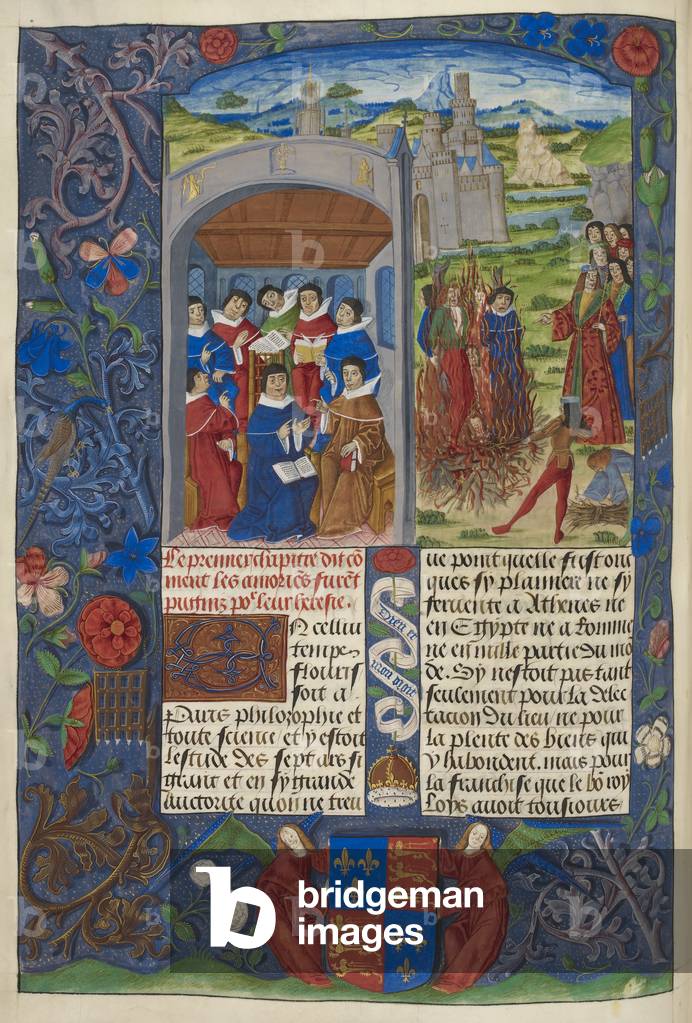 Le premier chapitre dit cō
ment les amories furēt
puniz poᵉ leur heresie.
N cellui
temps
flouris
soit a
Paris philozophie et
toute science et y estoit
lestude des sept ars si
grant et en sy grande
auctorite quon ne treu
ue point quelle fust onc
ques sy planniere ne sy
feruente a Athenes ne
en Egypte ne a Romme
ne en nulle partie du mō
de. Sy nestoit pas tant
seulement pour la delec
tacion du lieu ne pour
la plente des biens qui
y habondent. mais pour
la franchise que le bō roy
Loys auoit tousiours
Dieu et
mon droit
b bridgeman
images